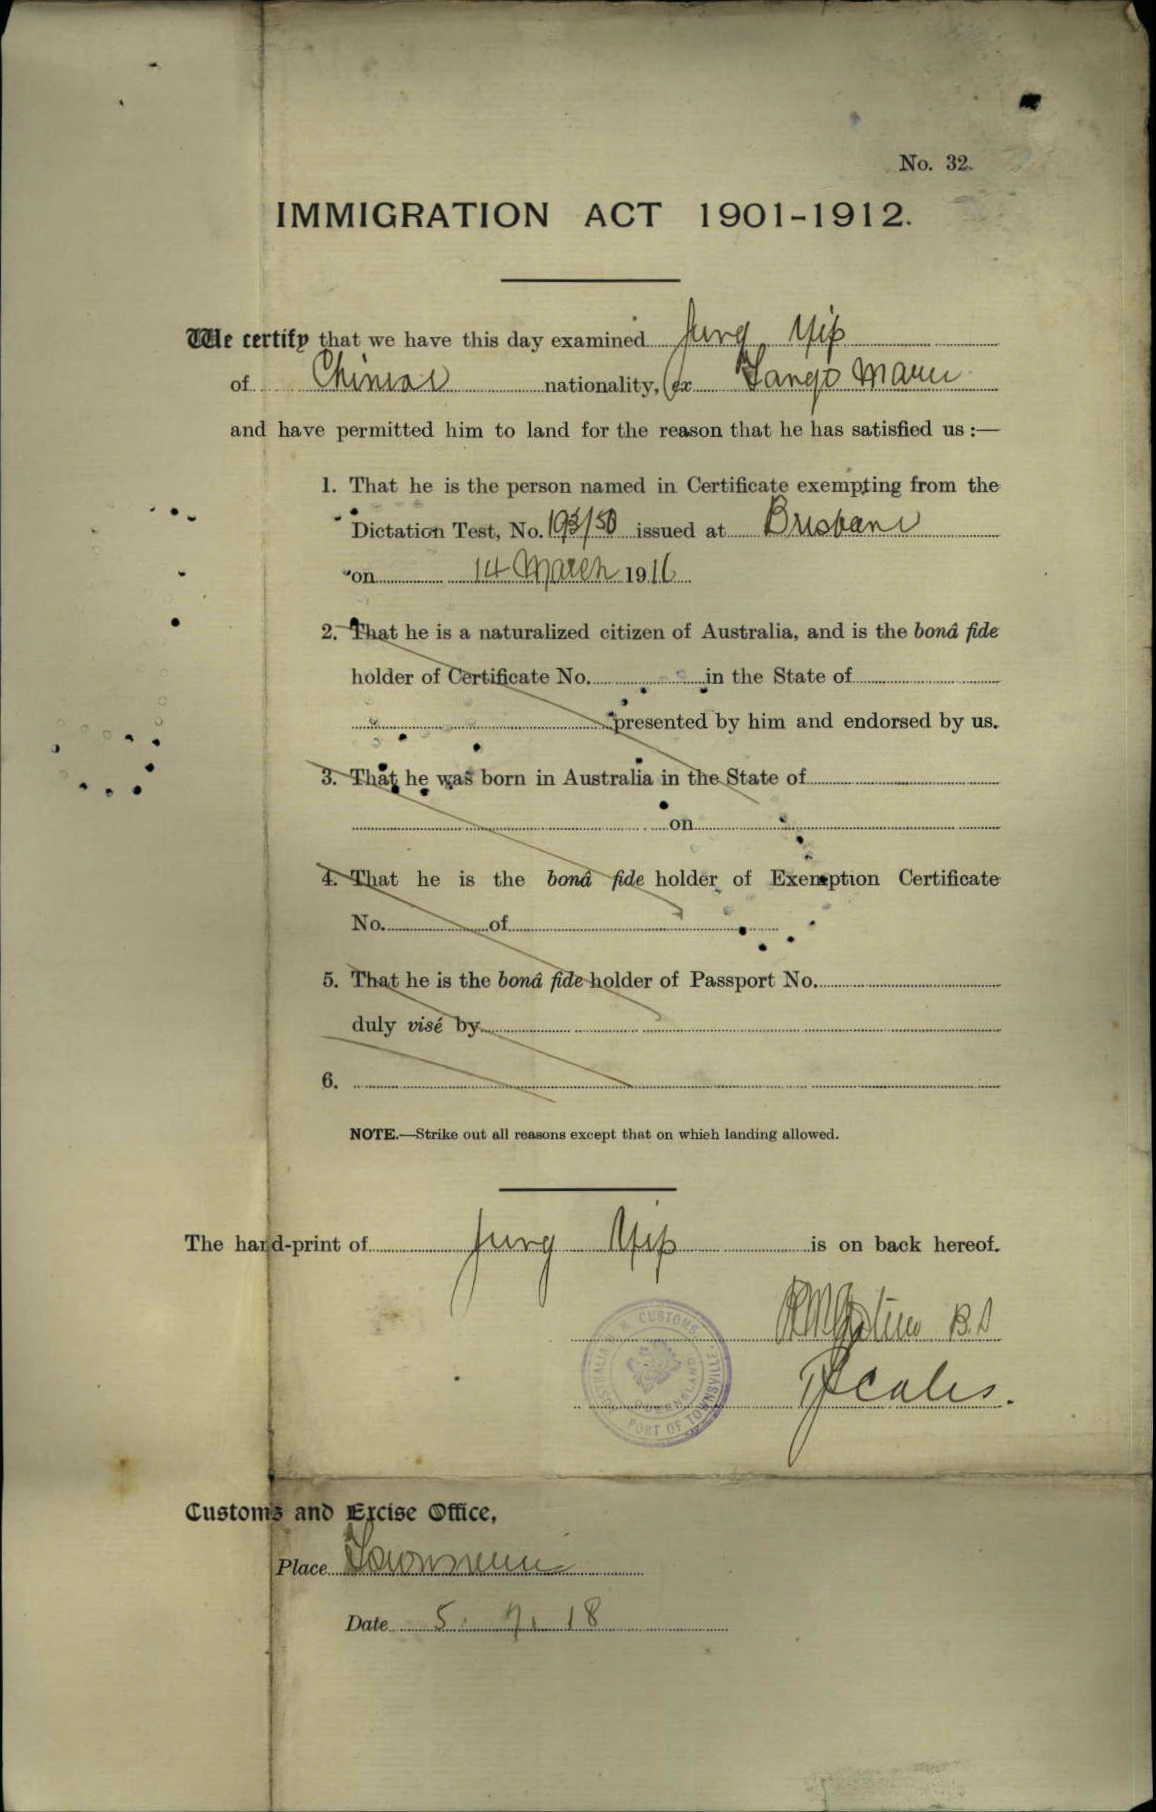 No. 32.
IMMIGRATION ACT 1901-1912.
We certify that we have this day examined Jung Yip
of Chinese nationality, (ex Tango Maru
and have permitted him to land for the reason that he has satisfied us :—
1. That he is the person named in Certificate exempting from the
Dictation Test, No. 193/50 issued at Brisbane
on 14 March 1916
2. That he is a naturalized citizen of Australia, and is the bonâ fide
holder of Certificate No. in the State of
presented by him and endorsed by us.
3. That he was born in Australia in the State of
on
4. That he is the bonâ fide holder of Exemption Certificate
No. of
5. That he is the bonâ fide holder of Passport No.
duly visé by
6.
NOTE.—Strike out all reasons except that on which landing allowed.
The hand-print of Jung Yip is on back hereof.
H. M. CUSTOMS. AUSTRALIA QUEENSLAND PORT OF TOWNSVILLE
B.S
Scales.
Customs and Excise Office,
Place Townsville
Date 5. 7. 18